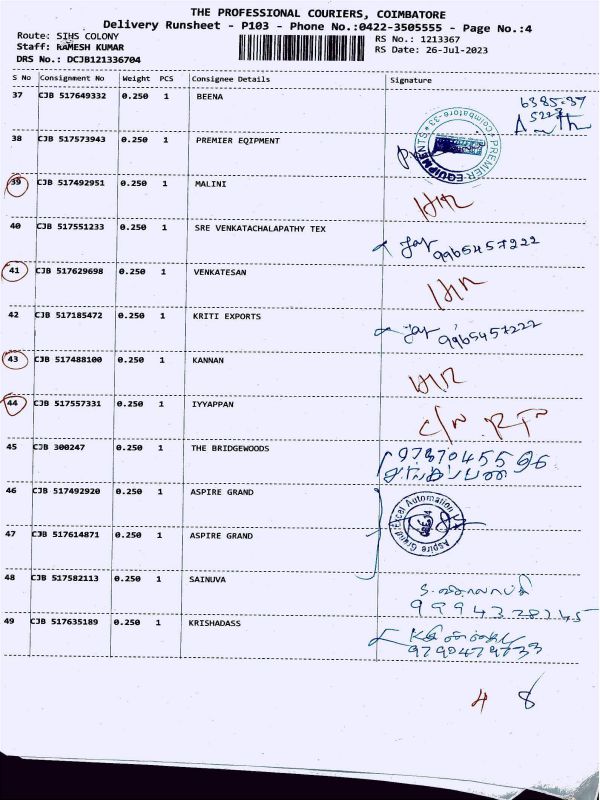 THE PROFESSIONAL COURIERS, COIMBATORE
Delivery Runsheet - P103 - Phone No.:0422-3505555 - Page No.:4
Route: SIHS COLONY
RS No.: 1213367
Staff: RAMESH KUMAR
RS Date: 26-Jul-2023
DRS No.: DCJB121336704
S No Consignment No Weight PCS Consignee Details Signature
37 CJB 517649332 0.250 1 BEENA
38 CJB 517573943 0.250 1 PREMIER EQIPMENT
PREMIER EQUIPMENTS * Coimbatore-33 *
39 CJB 517492951 0.250 1 MALINI
40 CJB 517551233 0.250 1 SRE VENKATACHALAPATHY TEX
9965457222
41 CJB 517629698 0.250 1 VENKATESAN
42 CJB 517185472 0.250 1 KRITI EXPORTS
9965457222
43 CJB 517488100 0.250 1 KANNAN
44 CJB 517557331 0.250 1 IYYAPPAN
45 CJB 300247 0.250 1 THE BRIDGEWOODS
46 CJB 517492920 0.250 1 ASPIRE GRAND
Aspire Grand/Excel Automation
47 CJB 517614871 0.250 1 ASPIRE GRAND
48 CJB 517582113 0.250 1 SAINUVA
49 CJB 517635189 0.250 1 KRISHADASS
4 8